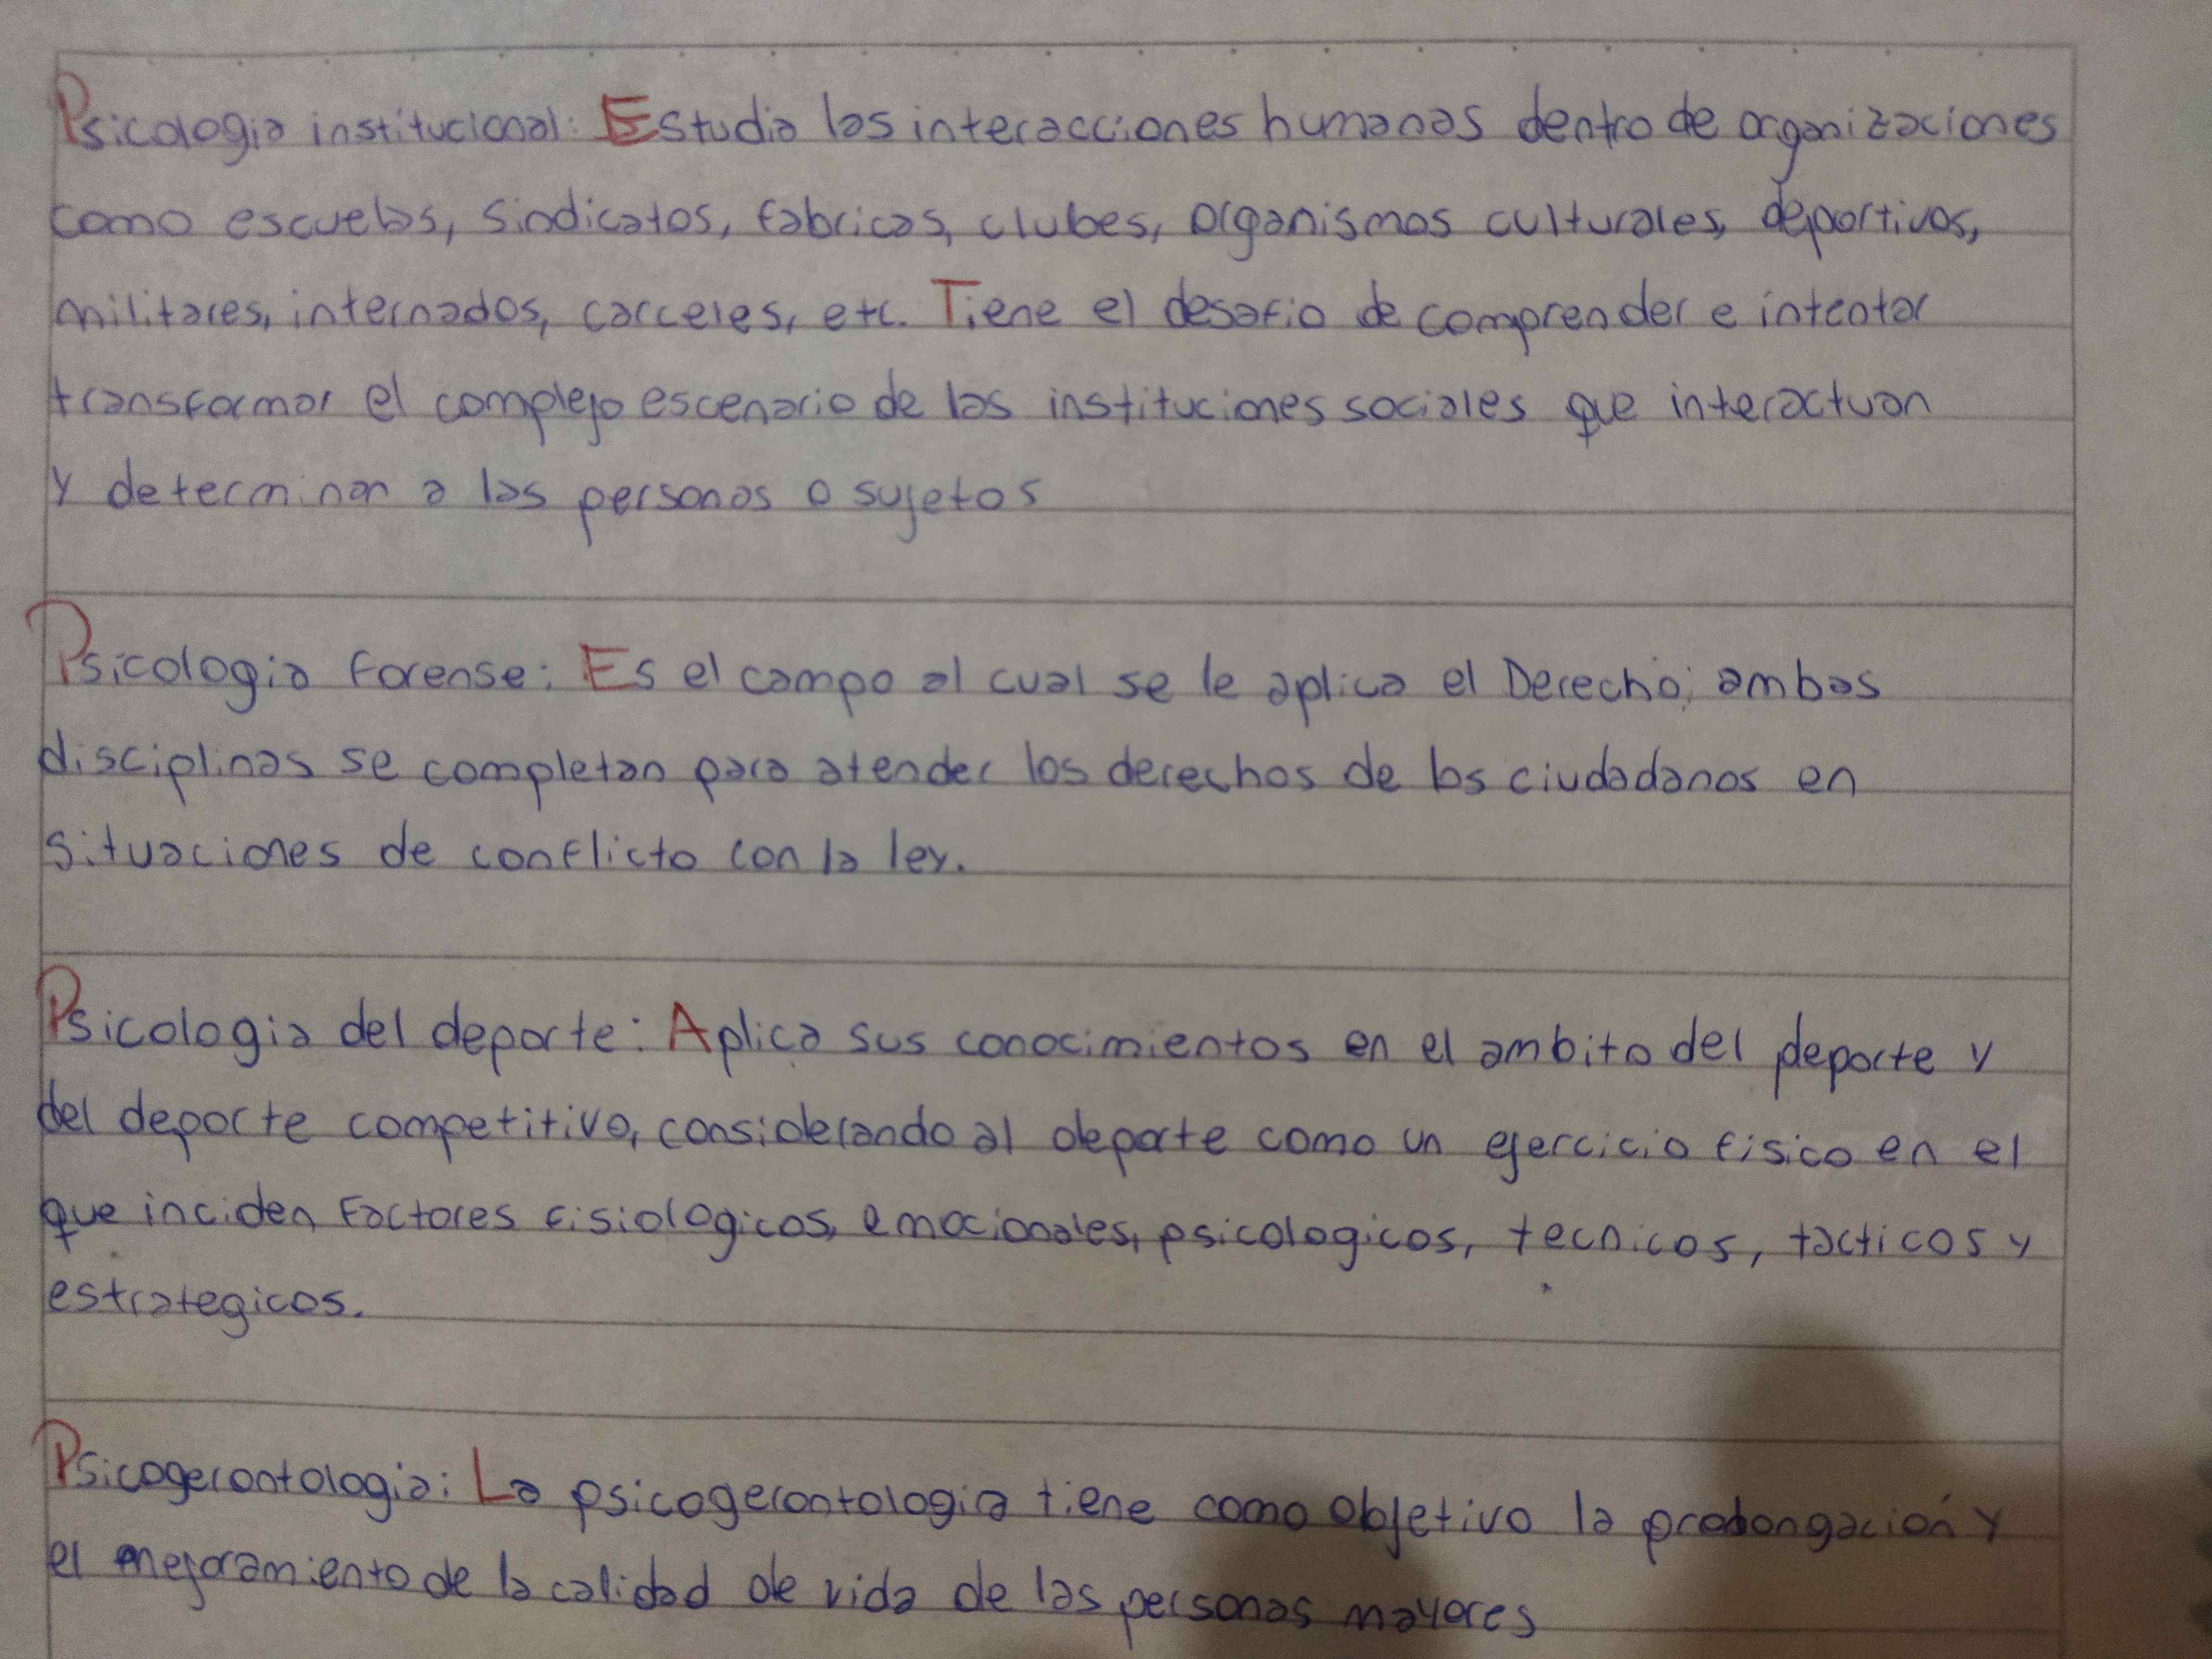 Psicologia institucional: Estudia las interacciones humanas dentro de organizaciones
como escuelas, sindicatos, fabricas, clubes, organismos culturales, deportivos,
militares, internados, carceles, etc. Tiene el desafio de comprender e intentar
transformar el complejo escenario de las instituciones sociales que interactuan
y determinan a las personas o sujetos
Psicologia forense: Es el campo al cual se le aplica el Derecho; ambas
disciplinas se completan para atender los derechos de los ciudadanos en
situaciones de conflicto con la ley.
Psicologia del deporte: Aplica sus conocimientos en el ambito del deporte y
del deporte competitivo, considerando al deporte como un ejercicio fisico en el
que inciden factores fisiologicos, emocionales, psicologicos, tecnicos, tacticos y
estrategicos.
Psicogerontologia: La psicogerontologia tiene como objetivo la prolongación y
el mejoramiento de la calidad de vida de las personas mayores